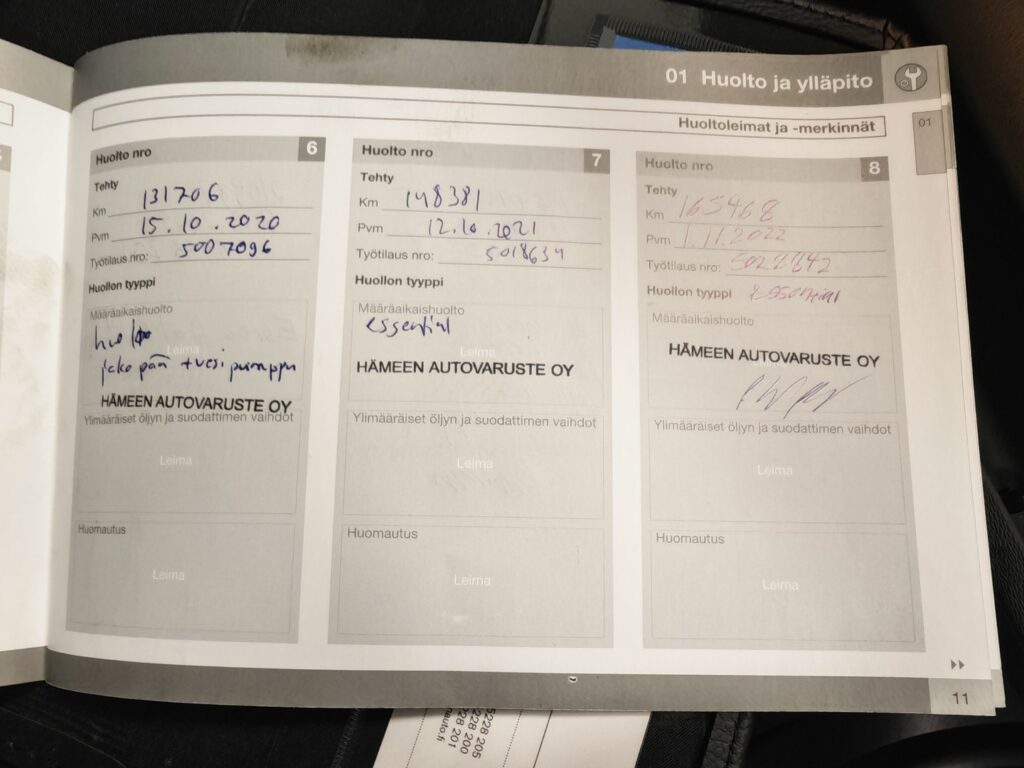 01 Huolto ja ylläpito
Huoltoleimat ja -merkinnät
01
Huolto nro 6
Tehty
Km 131706
Pvm 15.10.2020
Työtilaus nro: 5007096
Huollon tyyppi
Määräaikaishuolto
huolto
Leima
jakopää + vesipumppu
HÄMEEN AUTOVARUSTE OY
Ylimääräiset öljyn ja suodattimen vaihdot
Leima
Huomautus
Leima
Huolto nro 7
Tehty
Km 148381
Pvm 12.10.2021
Työtilaus nro: 5018634
Huollon tyyppi
Määräaikaishuolto
essential
Leima
HÄMEEN AUTOVARUSTE OY
Ylimääräiset öljyn ja suodattimen vaihdot
Leima
Huomautus
Leima
Huolto nro 8
Tehty
Km 165468
Pvm 1.11.2022
Työtilaus nro:
Huollon tyyppi Essential
Määräaikaishuolto
HÄMEEN AUTOVARUSTE OY
Ylimääräiset öljyn ja suodattimen vaihdot
Leima
Huomautus
Leima
11
5228 205
228 200
228 201
nauto.fi